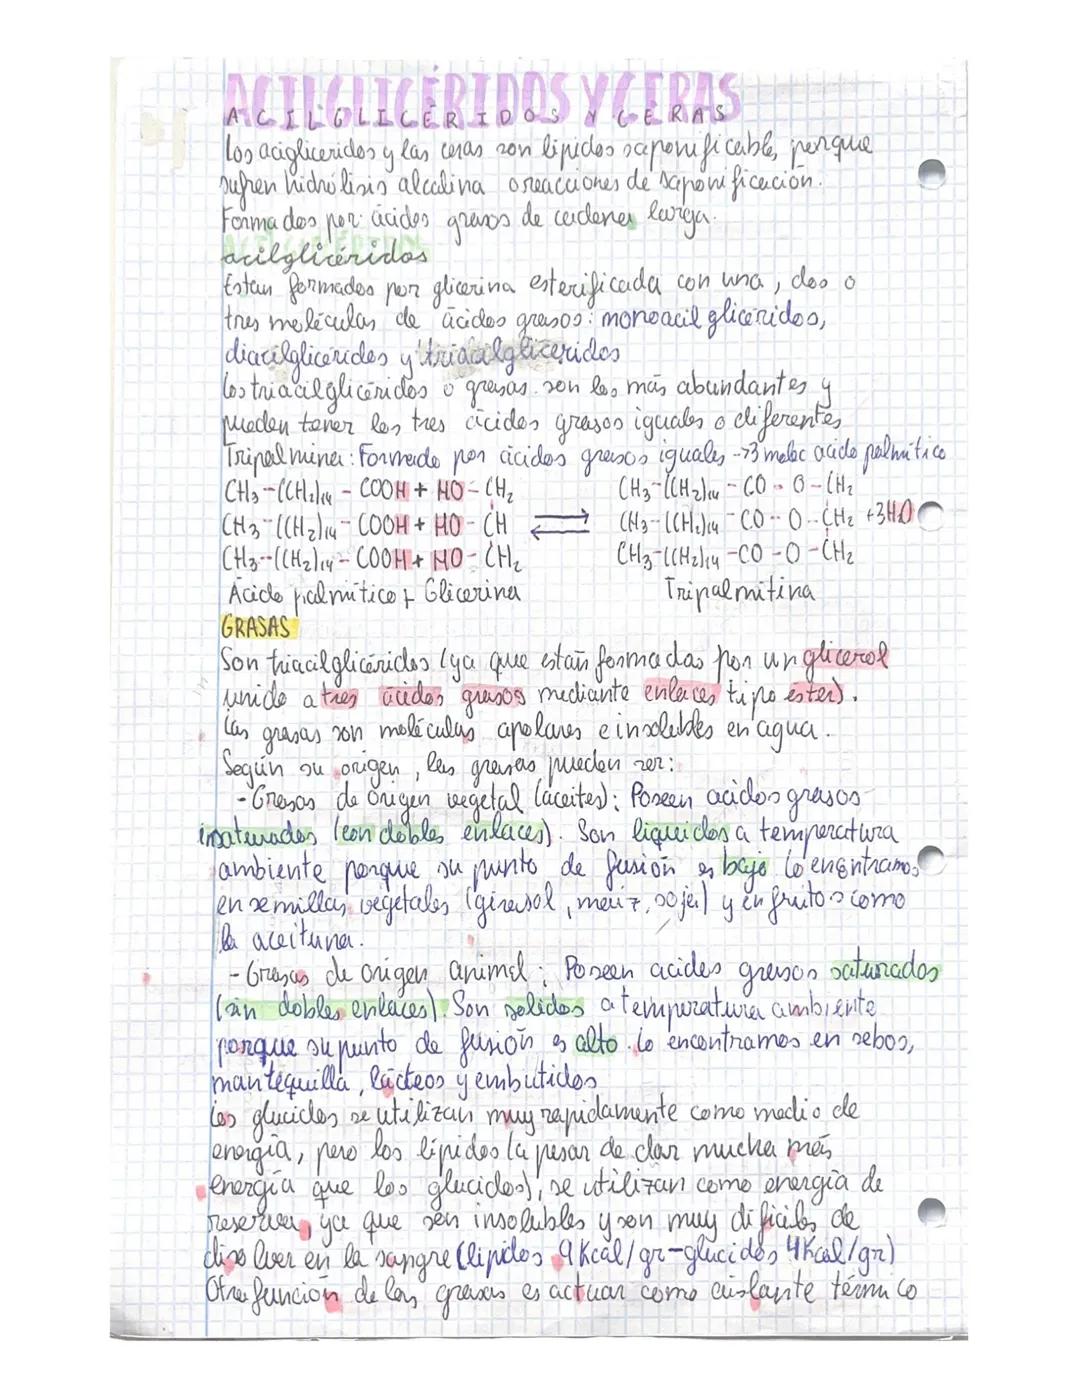 ACILGLICÉRIDOS Y CERAS
Los acigliceridos y las ceras son lípidos saponificable, porque
sufren hidrólisis alcalina o reacciones de saponificación.
Formados por ácidos grasos de cadenas larga.
acilglicéridos
Estan formados por glicerina esterificada con una, dos o
tres moléculas de ácidos grasos: monoacilglicéridos,
diacilglicéridos y triacilgliceridos
Los triacilglicéridos o grasas son los más abundantes y
pueden tener los tres ácidos grasos iguales o diferentes
Tripalmina: Formado por ácidos grasos iguales -> 3 molec acido palmítico
CH3-(CH2)14 - COOH + HO - CH2 CH3-(CH2)14 - CO - O - CH2
CH3-(CH2)14 - COOH + HO - CH ⇌ CH3-(CH2)14 - CO - O - CH2 + 3H2O
CH3-(CH2)14 - COOH + HO - CH2 CH3-(CH2)14 - CO - O - CH2
Acido palmítico + Glicerina Tripalmitina
GRASAS
Son triacilglicéridos (ya que están formadas por un glicerol
unido a tres ácidos grasos mediante enlaces tipo éster).
Las grasas son moléculas apolares e insolubles en agua.
Según su origen, las grasas pueden ser:
- Grasas de origen vegetal (aceites): Poseen acidos grasos
insaturados (con dobles enlaces). Son líquidos a temperatura
ambiente porque su punto de fusión es bajo. Lo encontramos
en semillas vegetales (girasol, maíz, soja) y en frutos como
la aceituna.
- Grasas de origen animal: Poseen acidos grasos saturados
(sin dobles enlaces). Son solidos a temperatura ambiente
porque su punto de fusión es alto. Lo encontramos en sebos,
mantequilla, lácteos y embutidos
Los glucidos se utilizan muy rapidamente como medio de
energía, pero los lípidos (a pesar de dar mucha más
energía que los glucidos), se utilizan como energía de
reserva, ya que son insolubles y son muy difíciles de
disolver en la sangre (lipidos 9Kcal/gr-glucidos 4Kcal/gr)
Otra función de las grasas es actuar como aislante térmico